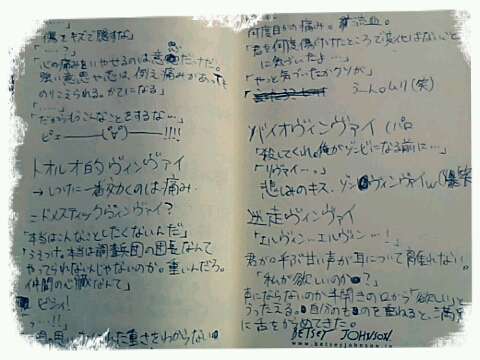 「……」
傷をキズで隠すな」
「……？」
「心の痛みをいやせるのは意思だけだ。
強い意思や志は、例え痛みがあっても
のりこえられる。かてになる」
「……」
「だからもうこんなことをするな…」
ピェー
トオルオ的ヴィンヴァイ
→しつけに一番効くのは痛み.
=ドメスティックヴィンヴァイ？
「本当はこんなことしたくないんだ」
本当は調査兵団の団長なんて
やってられないんじゃないのか。重いんだろ。
仲間の心臓なんて」
ビシィ！
っ…!!」
重さをわからない
何度目かの痛み。流血。
「君を何度傷付けたところで変化はないこと
に気づいたよ…」
「やっと気づいたかクソが」
うーん。ムリ(笑)
バイオヴィンヴァイ (パロ
「殺してくれ。俺がゾンビになる前に…」
「リヴァイ…。」
悲しみのキス. ゾンヴィンヴァイw(爆笑
迷走ヴィンヴァイ
「エルヴィン…エルヴィン…！」
君が呼ぶ甘い声が耳について離れない。
「私が欲しいのか？」
声にならないのか半開きの口から「欲しい」と
うったえる。自分のものを重ねると、満足
に舌をからめてきた。
BETSEY JOHNSON
www.betseyjohnson.jp